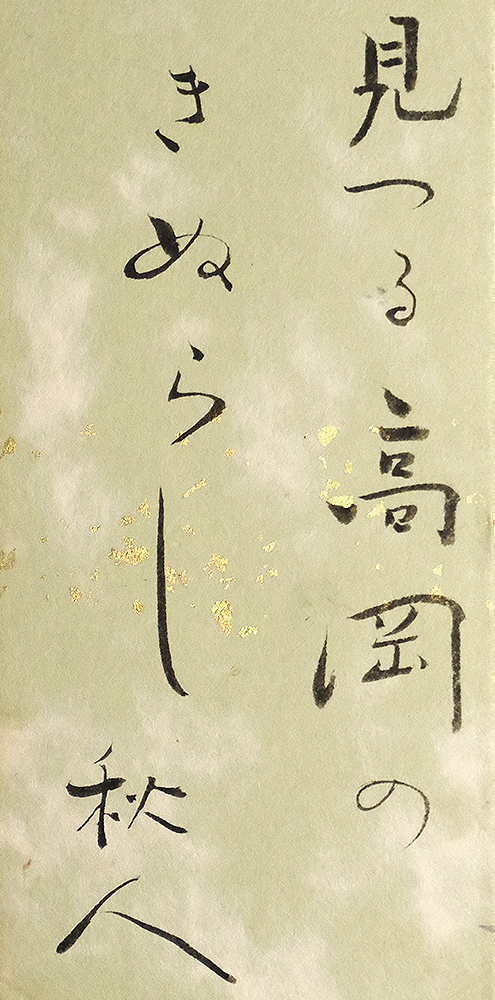 見つる高岡の
きぬらし
秋人